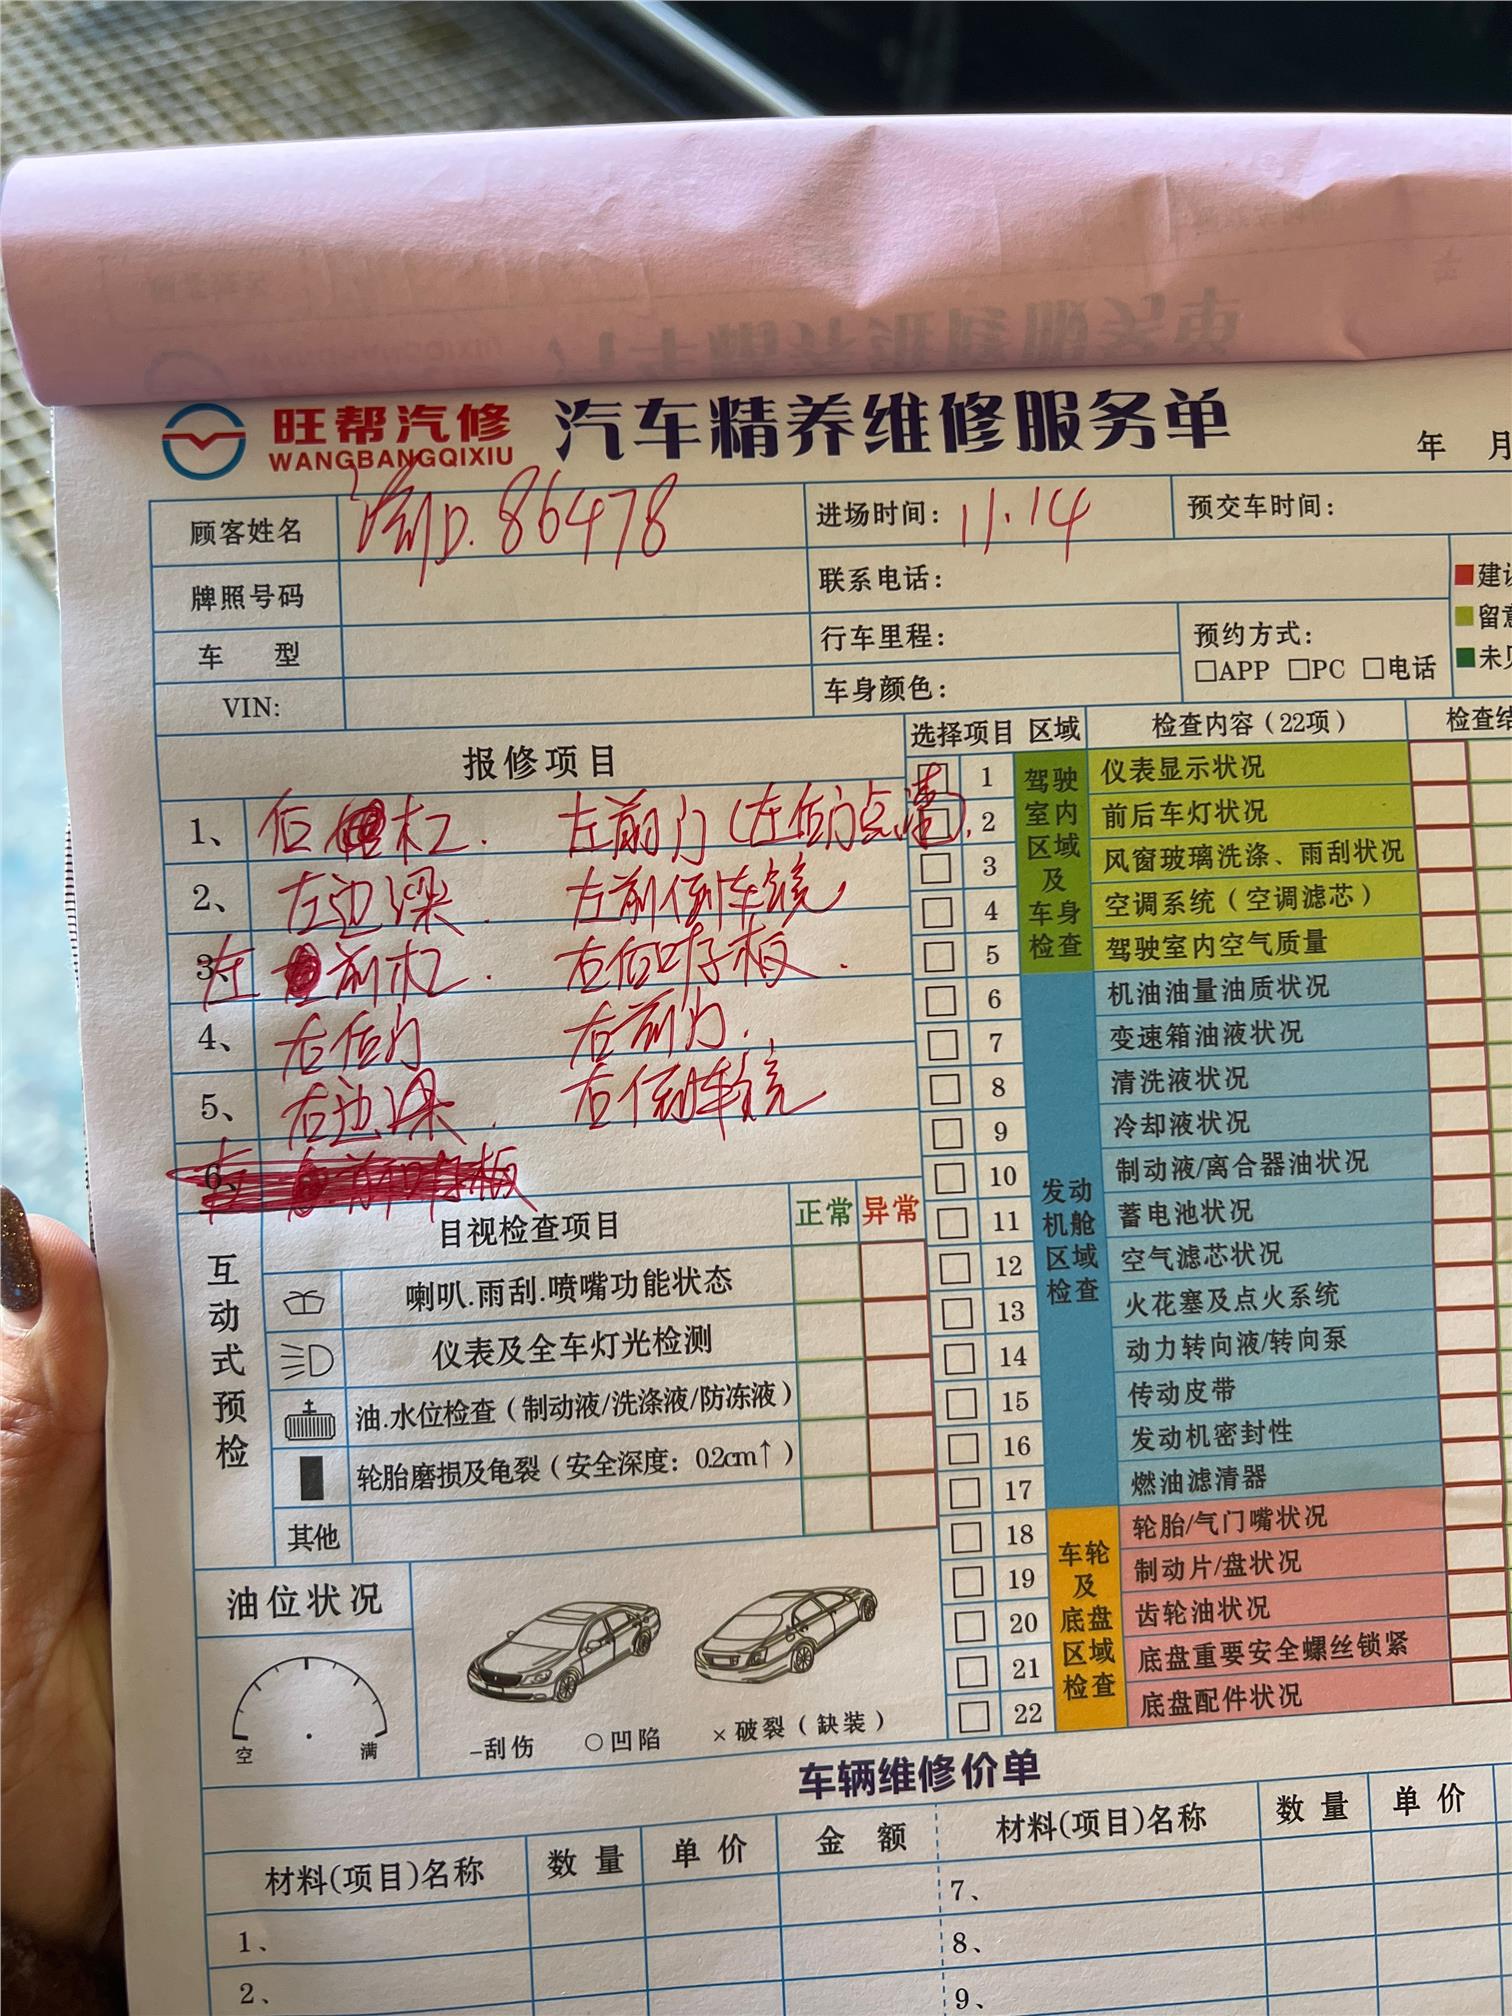 旺帮汽修
WANGBANGQIXIU
汽车精养维修服务单
年 月
顾客姓名 渝D.86478 进场时间：11.14 预交车时间：
牌照号码 联系电话：
车 型 行车里程： 预约方式：
□APP □PC □电话
VIN: 车身颜色：
建议
留意
未见
报修项目
1、后杠. 左前门（左后门点漆）.
2、左边梁. 左前倒车镜,
3、左前杠. 右后叶子板.
4、右后门 右前门.
5、右边梁. 右倒车镜
6、
互动式预检
目视检查项目 正常 异常
喇叭.雨刮.喷嘴功能状态
仪表及全车灯光检测
油.水位检查（制动液/洗涤液/防冻液）
轮胎磨损及龟裂（安全深度：0.2cm↑）
其他
油位状况
空 满
-刮伤 ○凹陷 ×破裂（缺装）
选择项目 区域 检查内容（22项） 检查结
驾驶室内区域及车身检查
1 仪表显示状况
2 前后车灯状况
3 风窗玻璃洗涤、雨刮状况
4 空调系统（空调滤芯）
5 驾驶室内空气质量
发动机舱区域检查
6 机油油量油质状况
7 变速箱油液状况
8 清洗液状况
9 冷却液状况
10 制动液/离合器油状况
11 蓄电池状况
12 空气滤芯状况
13 火花塞及点火系统
14 动力转向液/转向泵
15 传动皮带
16 发动机密封性
17 燃油滤清器
车轮及底盘区域检查
18 轮胎/气门嘴状况
19 制动片/盘状况
20 齿轮油状况
21 底盘重要安全螺丝锁紧
22 底盘配件状况
车辆维修价单
材料(项目)名称 数量 单价 金额 材料(项目)名称 数量 单价
1、 7、
2、 8、
9、